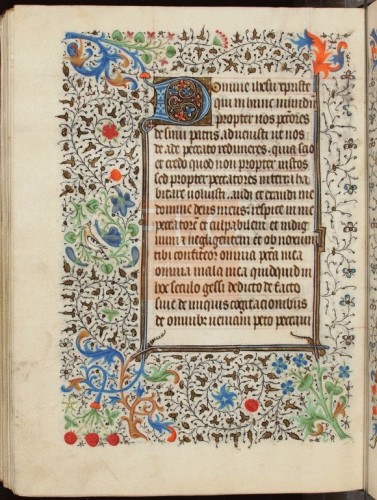 Domine ihesu christe
qui in hunc mundum
propter nos peccatores
de sinu patris advenisti ut nos
de ade peccato redimeres. quia scio
et credo quod non propter iustos
sed propter peccatores in terra ha
bitare voluisti. audi et exaudi me
domine deus meus. respice in me
peccatorem et culpabilem et indig
num a negligentem et ob noxium
tibi confiteor omnia peccata mea
omnia mala mea quidquid in
hoc seculo gessi de dicto de facto
sive de iniquis cogitacionibus
de omnibus veniam peto peccavi